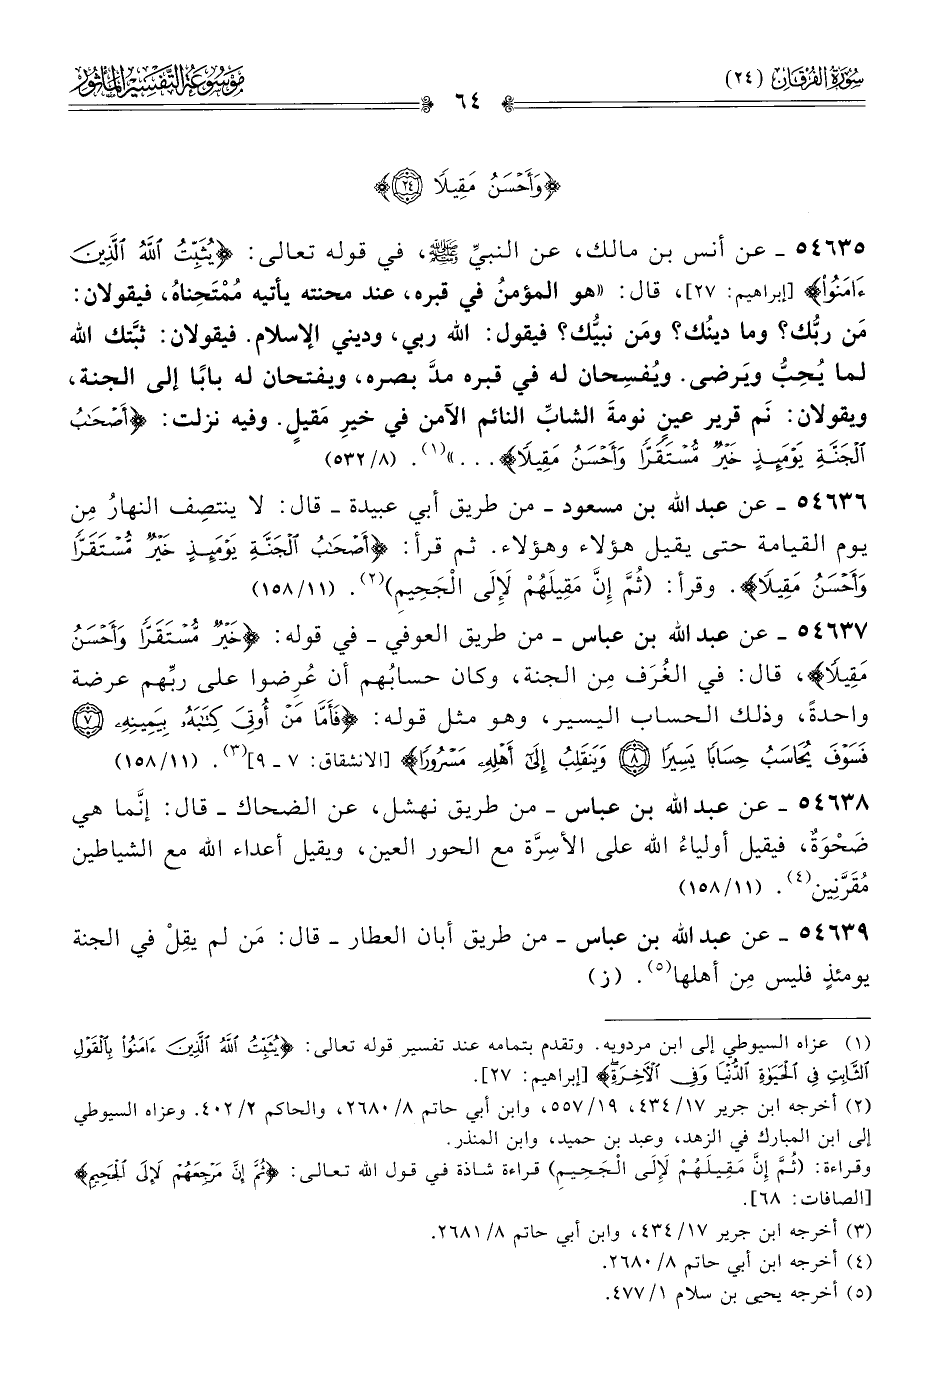 سُورَةُ الفُرْقَان (٢٤)
٦٤
مَوْسُوعَة التَّفْسِيرِ المَأْثُور
﴿وَأَحْسَنُ مَقِيلًا ﴿٢٤﴾﴾
٥٤٦٣٥ ـ عن أنس بن مالك، عن النبيِّ ﷺ، في قوله تعالى: ﴿يُثَبِّتُ ٱللَّهُ ٱلَّذِينَ
ءَامَنُوا۟﴾ [إبراهيم: ٢٧]، قال: «هو المؤمنُ في قبره، عند محنته يأتيه مُمْتَحِناهُ، فيقولان:
مَن ربُّك؟ وما دينُك؟ ومَن نبيُّك؟ فيقول: الله ربي، وديني الإسلام. فيقولان: ثبَّتك الله
لما يُحِبُّ ويَرضى. ويُفسِحان له في قبره مدَّ بصره، ويفتحان له بابًا إلى الجنة،
ويقولان: نَم قرير عينٍ نومةَ الشابِّ النائم الآمن في خيرِ مَقيلٍ. وفيه نزلت: ﴿أَصْحَـٰبُ
ٱلْجَنَّةِ يَوْمَئِذٍ خَيْرٌ مُّسْتَقَرًّا وَأَحْسَنُ مَقِيلًا﴾...»(١). (٥٣٢/٨)
٥٤٦٣٦ ـ عن عبد الله بن مسعود ـ من طريق أبي عبيدة ـ قال: لا ينتصِف النهارُ مِن
يوم القيامة حتى يقيل هؤلاء وهؤلاء. ثم قرأ: ﴿أَصْحَـٰبُ ٱلْجَنَّةِ يَوْمَئِذٍ خَيْرٌ مُّسْتَقَرًّا
وَأَحْسَنُ مَقِيلًا﴾. وقرأ: (ثُمَّ إِنَّ مَقِيلَهُمْ لَإِلَى الْجَحِيمِ)(٢). (١٥٨/١١)
٥٤٦٣٧ ـ عن عبد الله بن عباس ـ من طريق العوفي ـ في قوله: ﴿خَيْرٌ مُّسْتَقَرًّا وَأَحْسَنُ
مَقِيلًا﴾، قال: في الغُرَف مِن الجنة، وكان حسابُهم أن عُرِضوا على ربِّهم عرضة
واحدةً، وذلك الحساب اليسير، وهو مثل قوله: ﴿فَأَمَّا مَنْ أُوتِىَ كِتَـٰبَهُۥ بِيَمِينِهِۦ ﴿٧﴾
فَسَوْفَ يُحَاسَبُ حِسَابًا يَسِيرًا ﴿٨﴾ وَيَنقَلِبُ إِلَىٰٓ أَهْلِهِۦ مَسْرُورًا﴾ [الانشقاق: ٧ ـ ٩](٣). (١٥٨/١١)
٥٤٦٣٨ ـ عن عبد الله بن عباس ـ من طريق نهشل، عن الضحاك ـ قال: إنَّما هي
ضَحْوَةٌ، فيقيل أولياءُ الله على الأسِرَّة مع الحور العين، ويقيل أعداء الله مع الشياطين
مُقَرَّنِين(٤). (١٥٨/١١)
٥٤٦٣٩ ـ عن عبد الله بن عباس ـ من طريق أبان العطار ـ قال: مَن لم يقِلْ في الجنة
يومئذٍ فليس مِن أهلها(٥). (ز)
(١) عزاه السيوطي إلى ابن مردويه. وتقدم بتمامه عند تفسير قوله تعالى: ﴿يُثَبِّتُ ٱللَّهُ ٱلَّذِينَ ءَامَنُوا۟ بِٱلْقَوْلِ
ٱلثَّابِتِ فِى ٱلْحَيَوٰةِ ٱلدُّنْيَا وَفِى ٱلْـَٔاخِرَةِ﴾ [إبراهيم: ٢٧].
(٢) أخرجه ابن جرير ١٧/ ٤٣٤، ١٩/ ٥٥٧، وابن أبي حاتم ٨/ ٢٦٨٠، والحاكم ٢/ ٤٠٢. وعزاه السيوطي
إلى ابن المبارك في الزهد، وعبد بن حميد، وابن المنذر.
وقراءة: (ثُمَّ إِنَّ مَقِيلَهُمْ لَإِلَى الْجَحِيمِ) قراءة شاذة في قول الله تعالى: ﴿ثُمَّ إِنَّ مَرْجِعَهُمْ لَإِلَى ٱلْجَحِيمِ﴾
[الصافات: ٦٨].
(٣) أخرجه ابن جرير ١٧/ ٤٣٤، وابن أبي حاتم ٨/ ٢٦٨١.
(٤) أخرجه ابن أبي حاتم ٨/ ٢٦٨٠.
(٥) أخرجه يحيى بن سلام ١/ ٤٧٧.